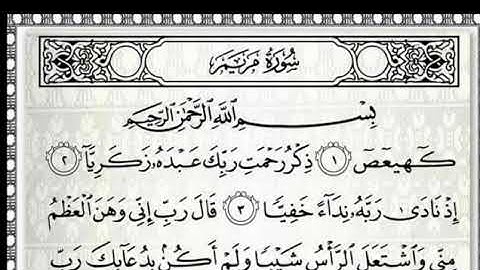 سُورَةُ مَرْيَمَ
بِسْمِ اللَّهِ الرَّحْمَٰنِ الرَّحِيمِ
كٓهيعٓصٓ ١ ذِكْرُ رَحْمَتِ رَبِّكَ عَبْدَهُۥ زَكَرِيَّآ ٢
إِذْ نَادَىٰ رَبَّهُۥ نِدَآءً خَفِيًّا ٣ قَالَ رَبِّ إِنِّى وَهَنَ ٱلْعَظْمُ
مِنِّى وَٱشْتَعَلَ ٱلرَّأْسُ شَيْبًا وَلَمْ أَكُنۢ بِدُعَآئِكَ رَبِّ